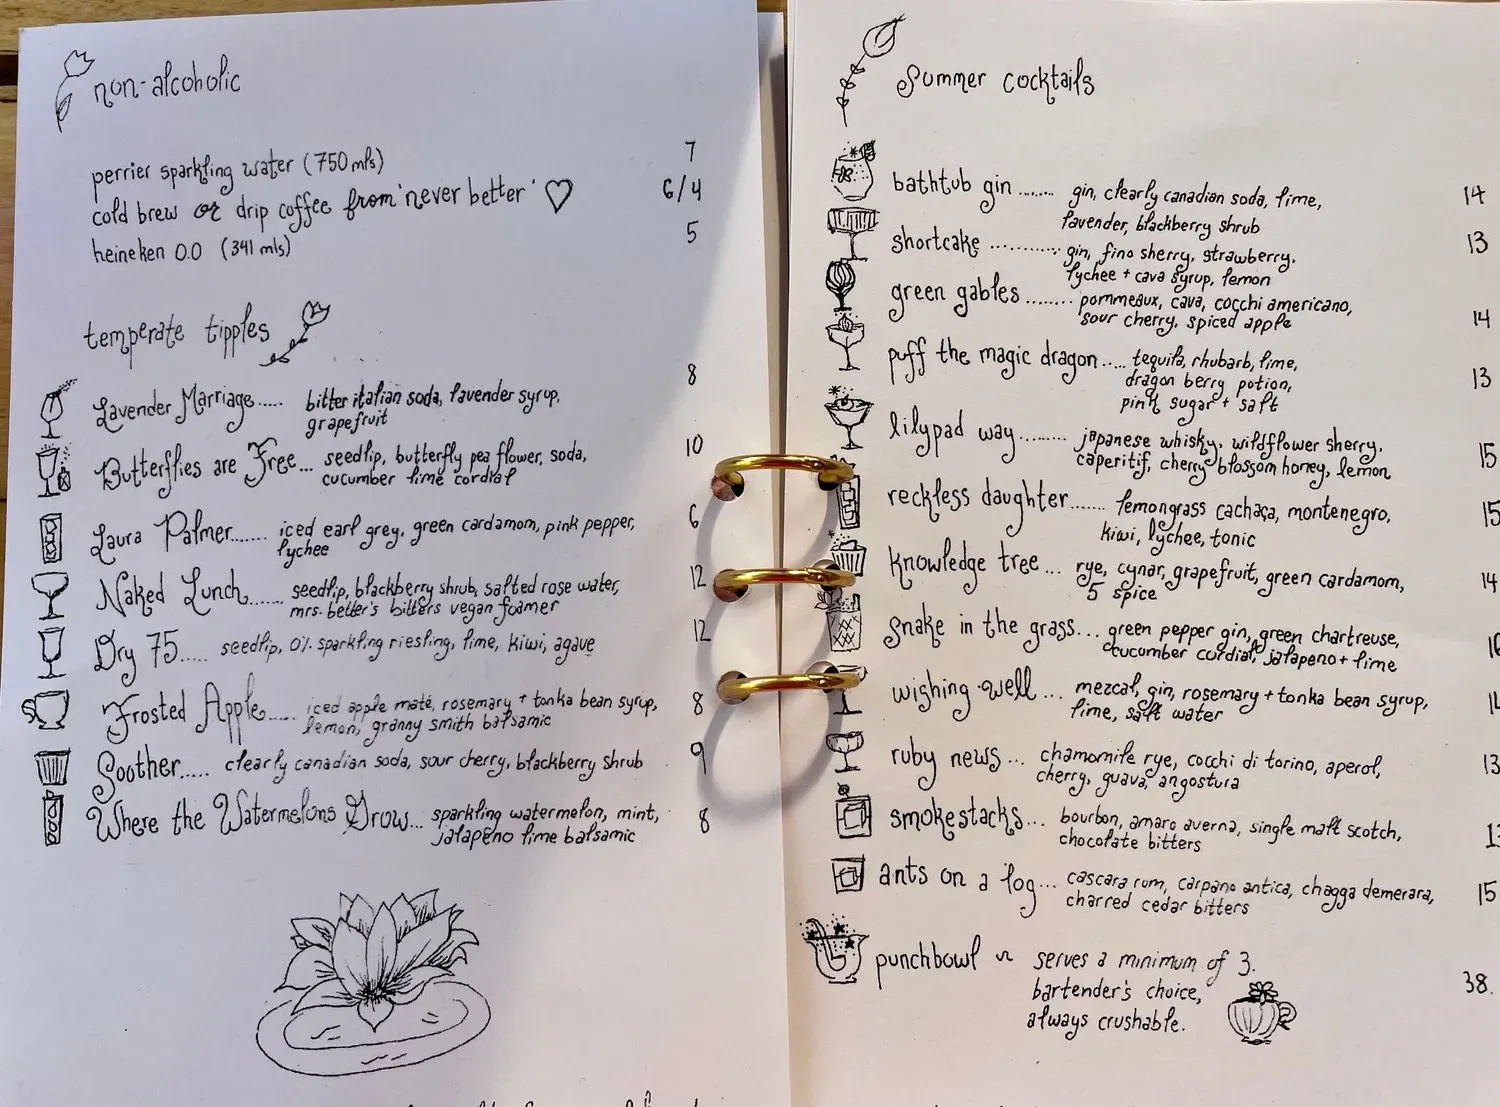 non-alcoholic
perrier sparkling water (750 mls) 7
cold brew or drip coffee from 'never better' ♡ 6/4
heineken 0.0 (341 mls) 5
temperate tipples
Lavender Marriage..... bitter italian soda, lavender syrup, 8
grapefruit
Butterflies are Free... seedlip, butterfly pea flower, soda, 10
cucumber lime cordial
Laura Palmer....... iced earl grey, green cardamom, pink pepper, 6
lychee
Naked Lunch....... seedlip, blackberry shrub, salted rose water, 12
mrs. better's bitters vegan foamer
Dry 75..... seedlip, 0% sparkling riesling, lime, kiwi, agave 12
Frosted Apple..... iced apple maté, rosemary + tonka bean syrup, 8
lemon, granny smith balsamic
Soother..... clearly canadian soda, sour cherry, blackberry shrub 9
Where the Watermelons Grow... sparkling watermelon, mint, 8
jalapeño lime balsamic
Summer cocktails
bathtub gin ........ gin, clearly canadian soda, lime, 14
lavender, blackberry shrub
shortcake ............ gin, fino sherry, strawberry, 13
lychee + cava syrup, lemon
green gables ........ pommeaux, cava, cocchi americano,
sour cherry, spiced apple 14
puff the magic dragon..... tequila, rhubarb, lime,
dragon berry potion, 13
pink sugar + salt
lilypad way......... japanese whisky, wildflower sherry,
caperitif, cherry blossom honey, lemon 15
reckless daughter....... lemongrass cachaça, montenegro, 15
kiwi, lychee, tonic
knowledge tree ... rye, cynar, grapefruit, green cardamom, 14
5 spice
snake in the grass... green pepper gin, green chartreuse,
cucumber cordial, jalapeno + lime
wishing well ... mezcal, gin, rosemary + tonka bean syrup,
lime, salt water
ruby news ... chamomile rye, cocchi di torino, aperol, 13
cherry, guava, angostura
smokestacks... bourbon, amaro averna, single malt scotch,
chocolate bitters
ants on a log... cascara rum, carpano antica, chagga demerara, 15
charred cedar bitters
punchbowl ~ serves a minimum of 3.
bartender's choice, 38.
always crushable.